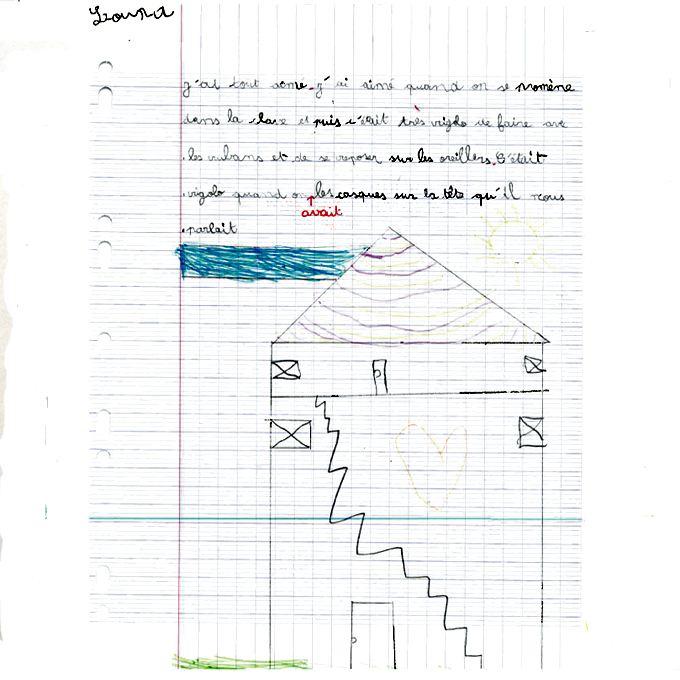 Louna
j'ai tout aimé. j'ai aimé quand on se promène
dans la et puis c'était très rigolo de faire ave
les rubans et de se reposer sur les oreillers. C'était
rigolo quand on les casques sur la tête qu'il nous
avait
parlait